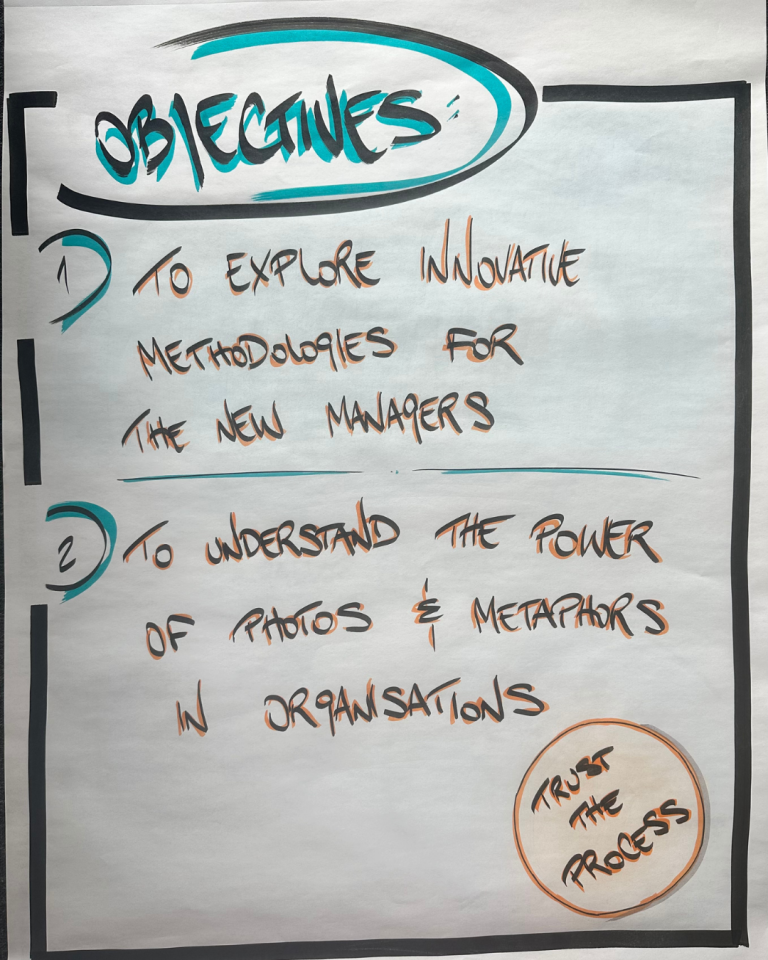 OBJECTIVES:
1 TO EXPLORE INNOVATIVE
METHODOLOGIES FOR
THE NEW MANAGERS
2 TO UNDERSTAND THE POWER
OF PHOTOS & METAPHORS
IN ORGANISATIONS
TRUST
THE
PROCESS